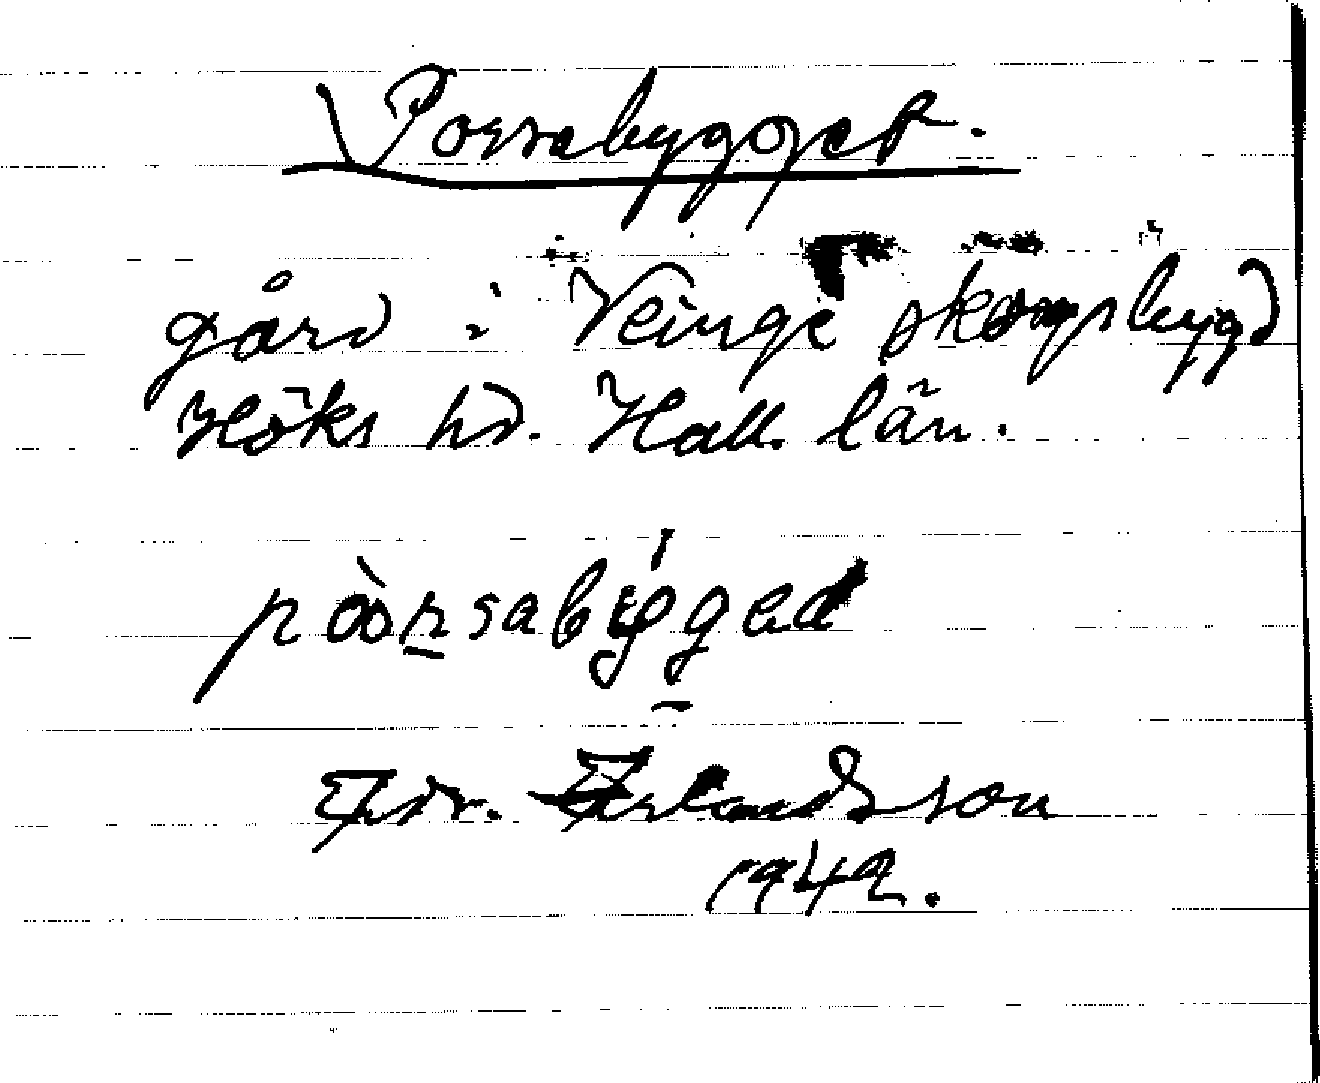 Porsabygget.
gård i Veinge skogsbygd
Höks hd. Hall. län.
pòrsabýgged
Edv. Erlandsson
1942.